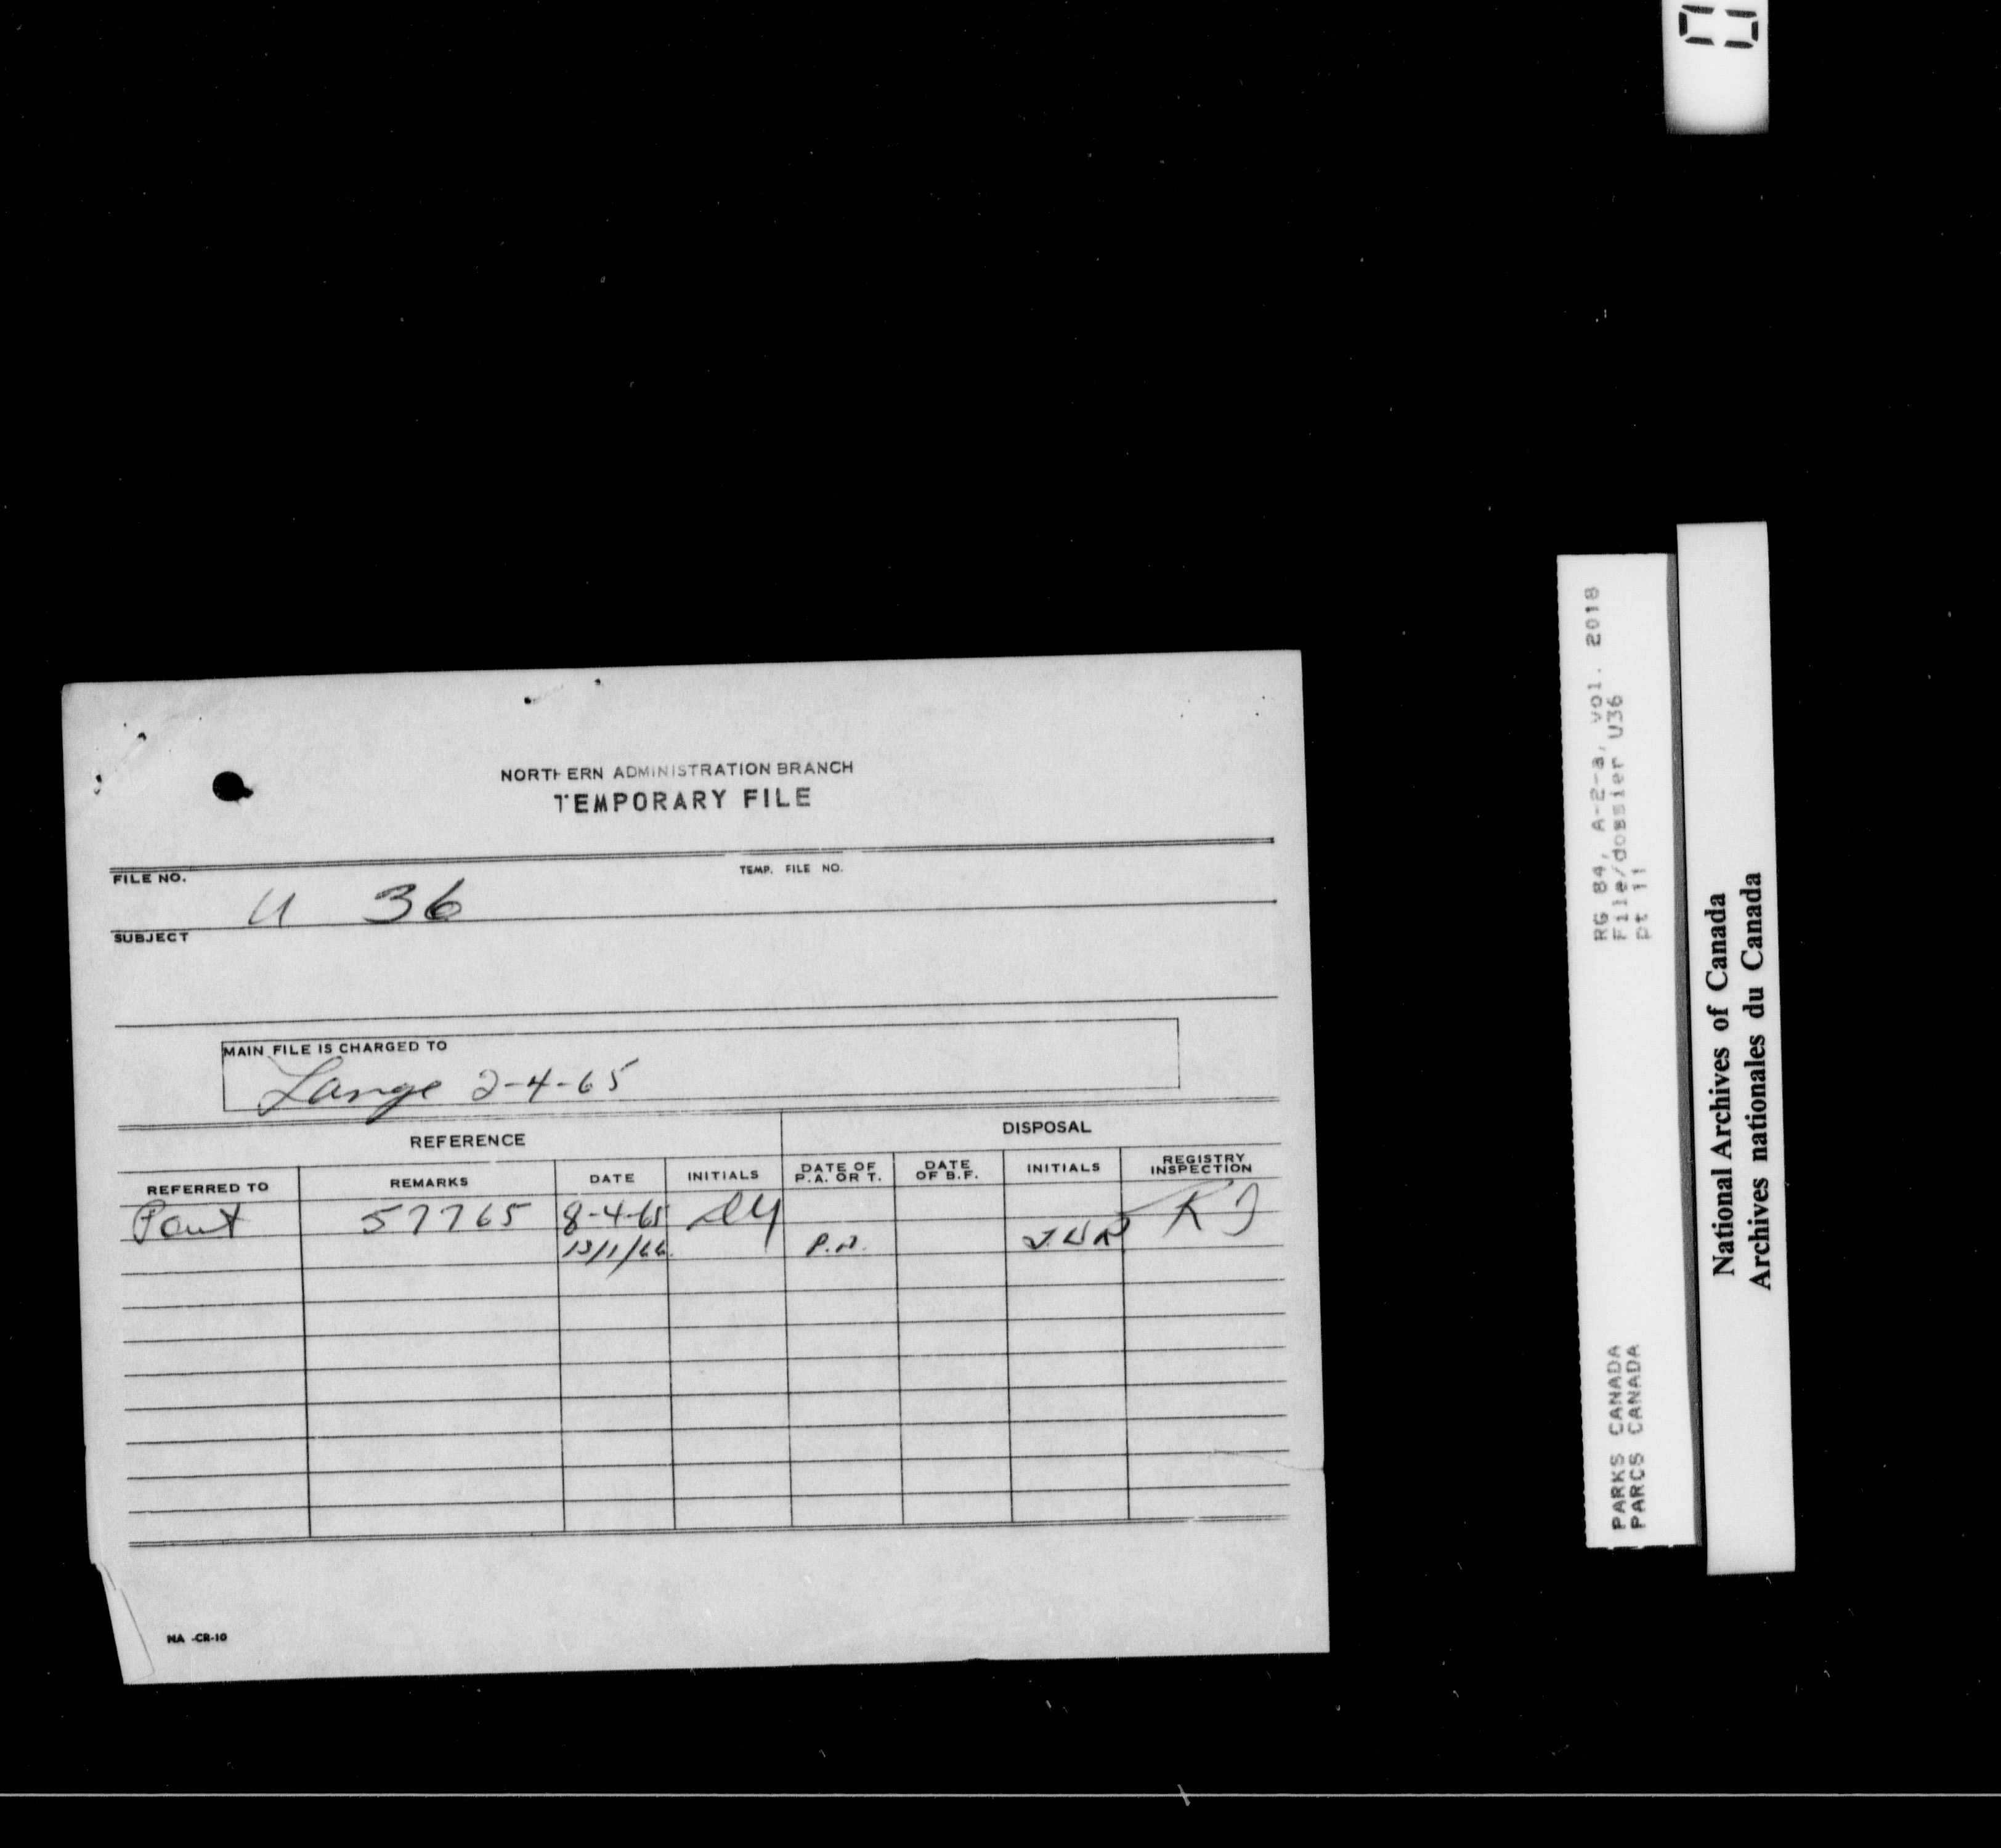 NORTHERN ADMINISTRATION BRANCH
TEMPORARY FILE
FILE NO. U 36
TEMP. FILE NO.
SUBJECT
MAIN FILE IS CHARGED TO
Lange 2-4-65
REFERENCE DISPOSAL
REFERRED TO REMARKS DATE INITIALS DATE OF P.A. OR T. DATE OF B.F. INITIALS REGISTRY INSPECTION
57765 8-4-65
13/1/66. P.A.
NA -CR-10
RG 84, A-2-a, vol. 2018
File/dossier U36
pt 11
PARKS CANADA
PARCS CANADA
National Archives of Canada
Archives nationales du Canada